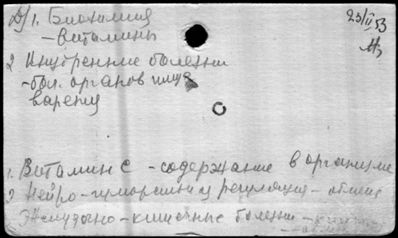 Д/1. Биохимия
23/II 53
- витамины
2 Внутренние болезни
- бол. органов пище
варения
1. Витамин С - содержание в организме
2 Нейро-гуморальная регуляция - обмена
Желудочно-кишечные болезни -